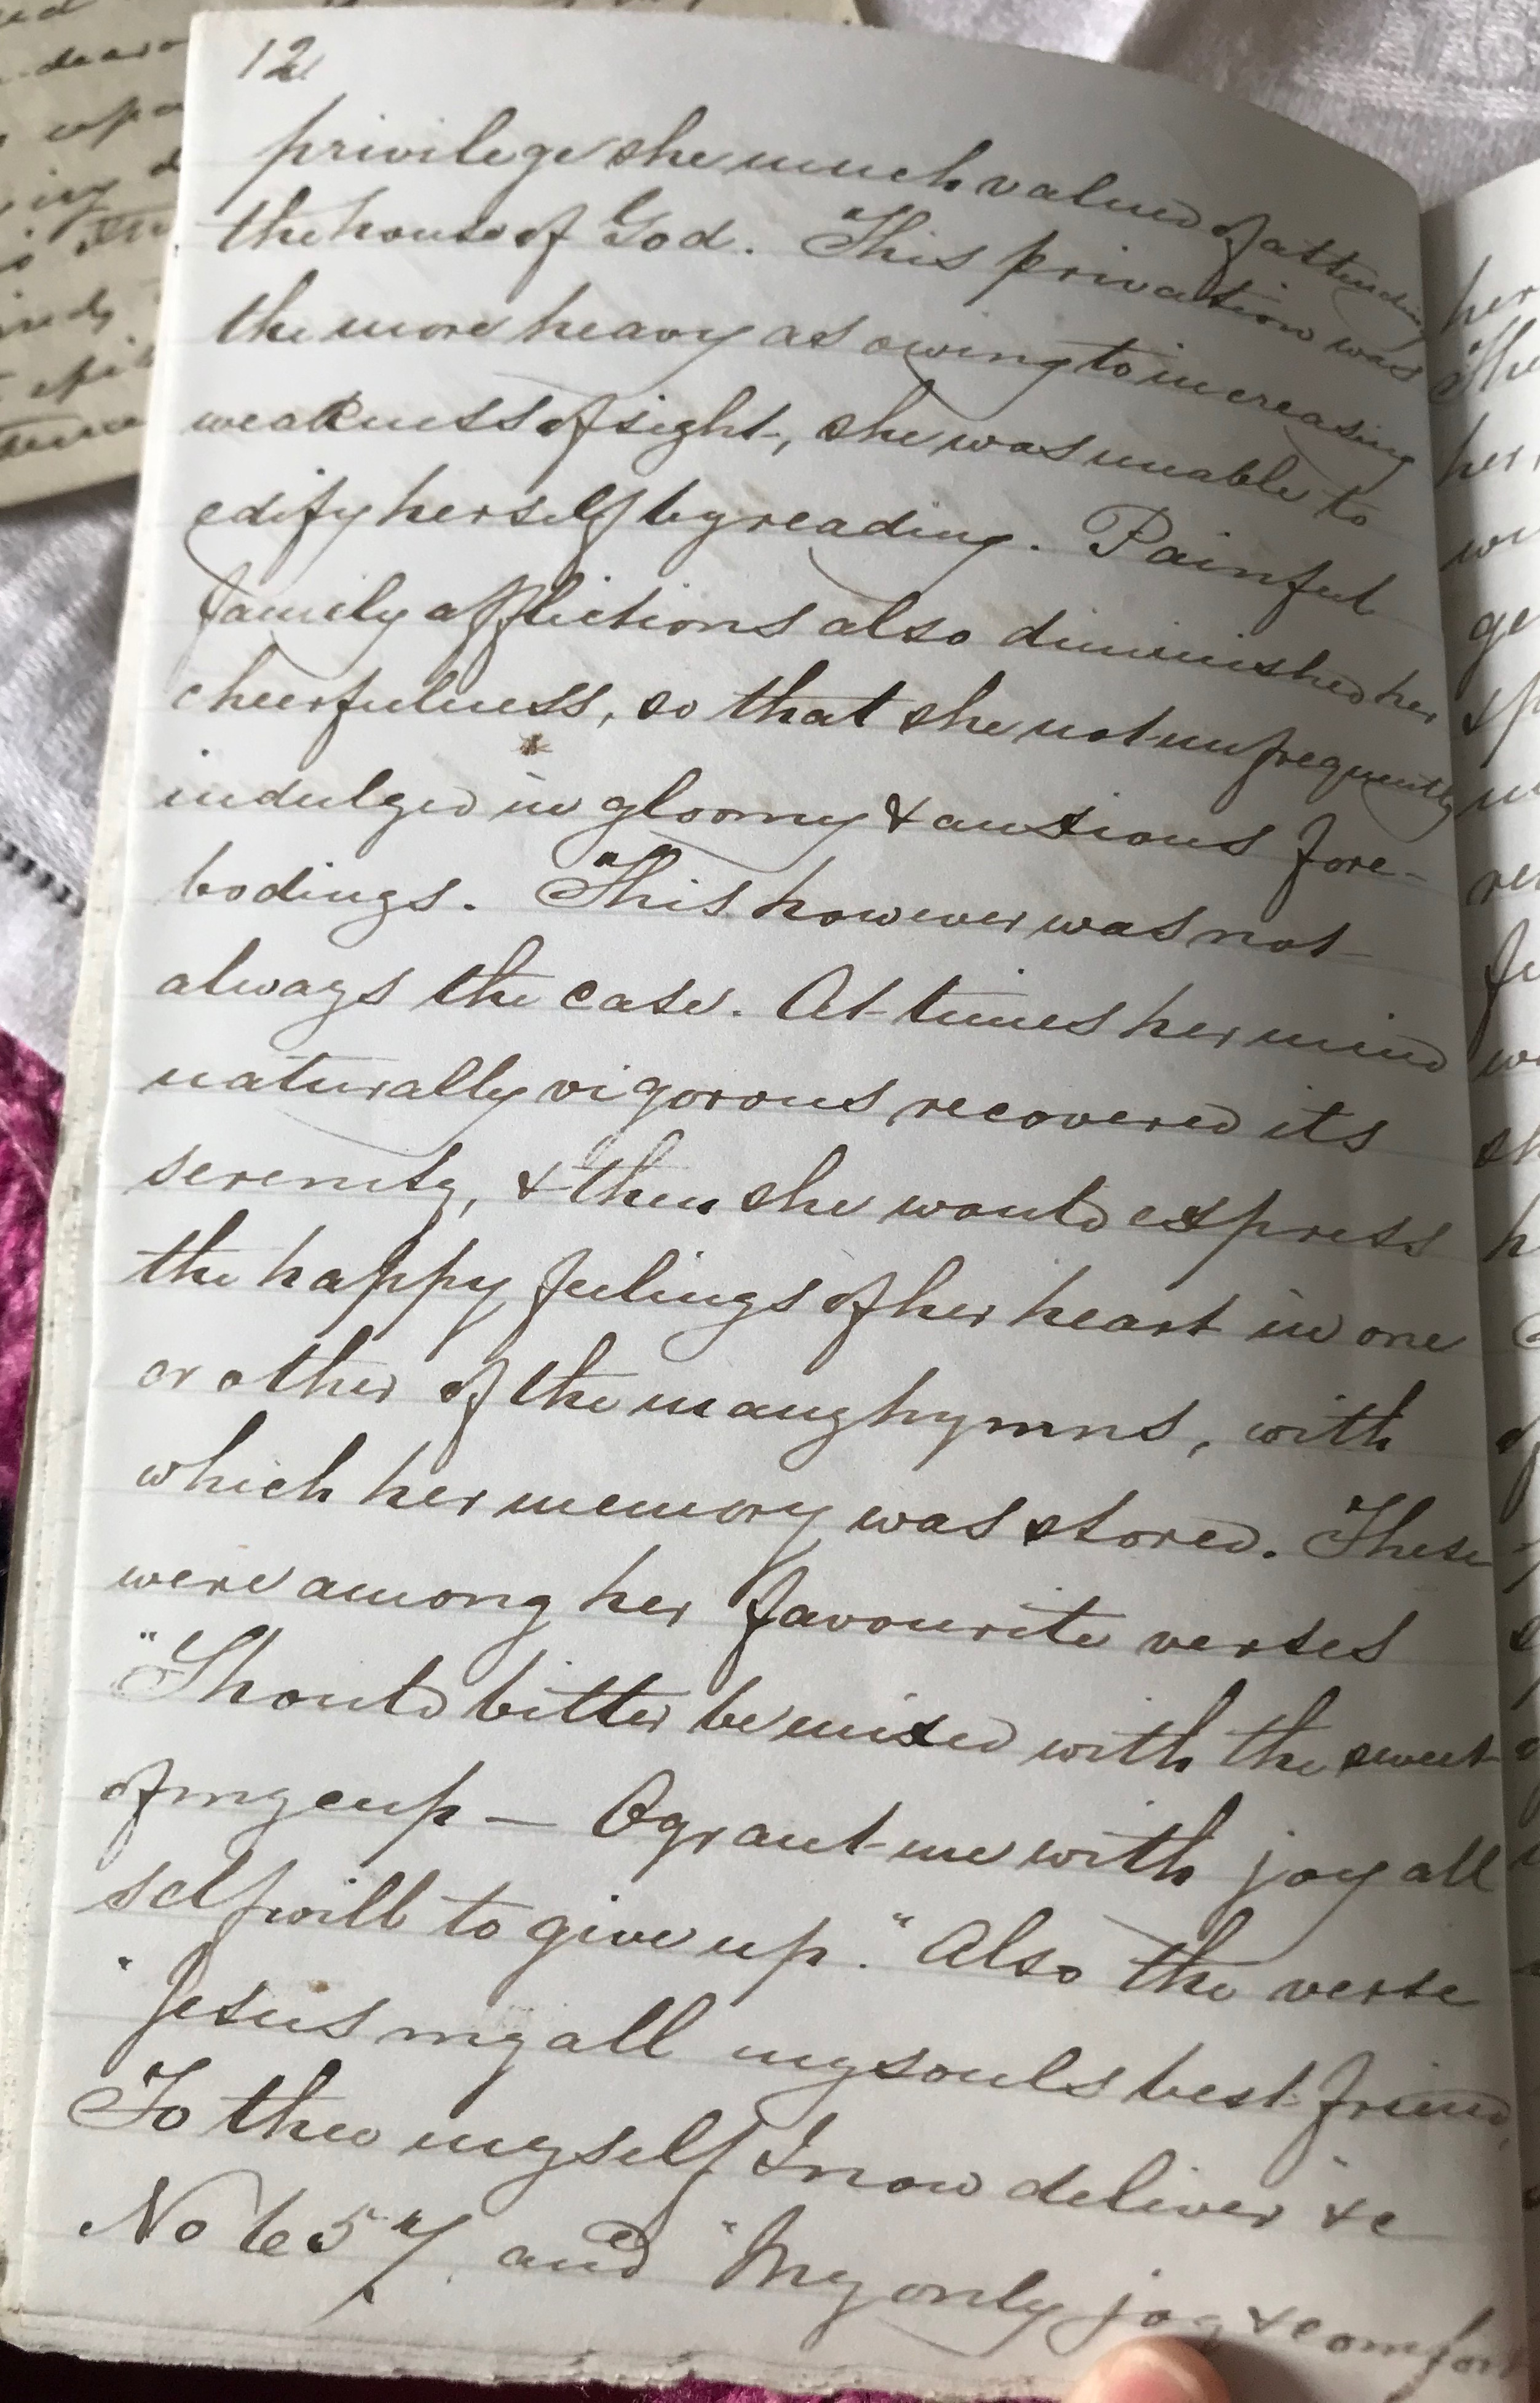 12
privilege she much valued of attending
the house of God. This privation was
the more heavy as owing to increasing
weakness of sight, she was unable to
edify herself by reading. Painful
family afflictions also diminished her
cheerfulness, so that she not unfrequently
indulged in gloomy & anxious fore-
bodings. This however was not
always the case. At times her mind
naturally vigorous recovered its
serenity, & then she would express
the happy feelings of her heart in one
or other of the many hymns, with
which her memory was stored. These
were among her favourite verses
"Should bitter be mixed with the sweet
of my cup — O grant me with joy all
self will to give up." Also the verse
"Jesus my all my souls best friend,
To thee myself I now deliver &c
No 657 and "My only joy & comfort